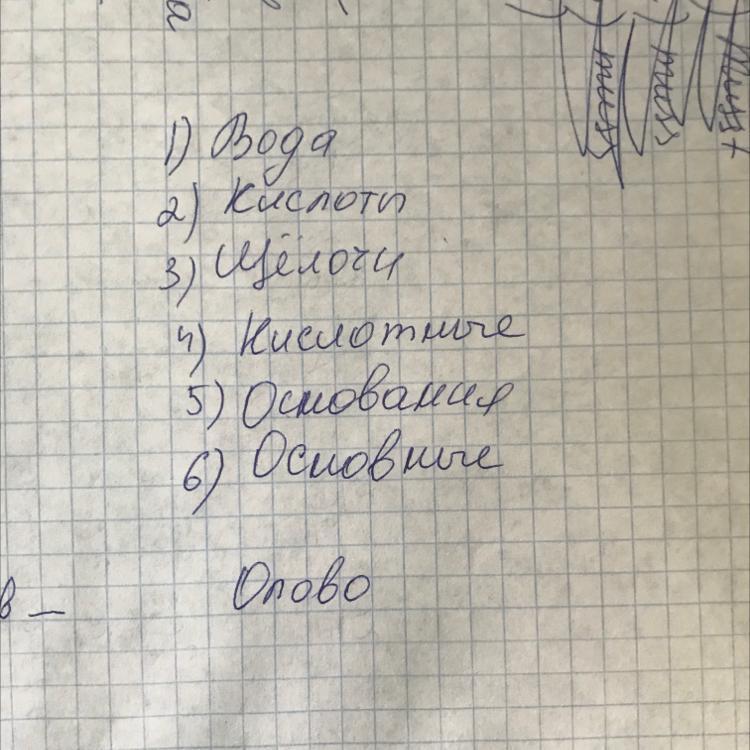 1) Вода
2) Кислоты
3) Щёлочи
4) Кислотные
5) Основания
6) Основные
в — Олово